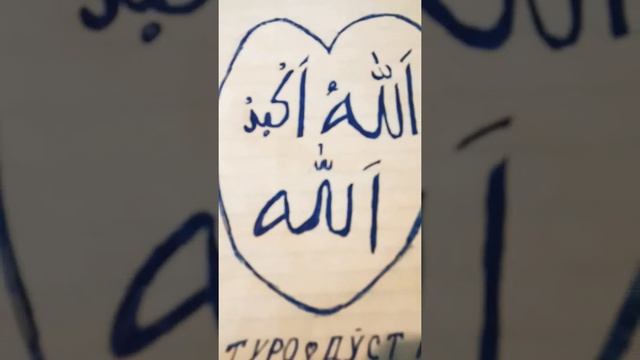 اَللّٰهُ اَكْبَرْ
اَللّٰه
ТУРО ДӮСТ